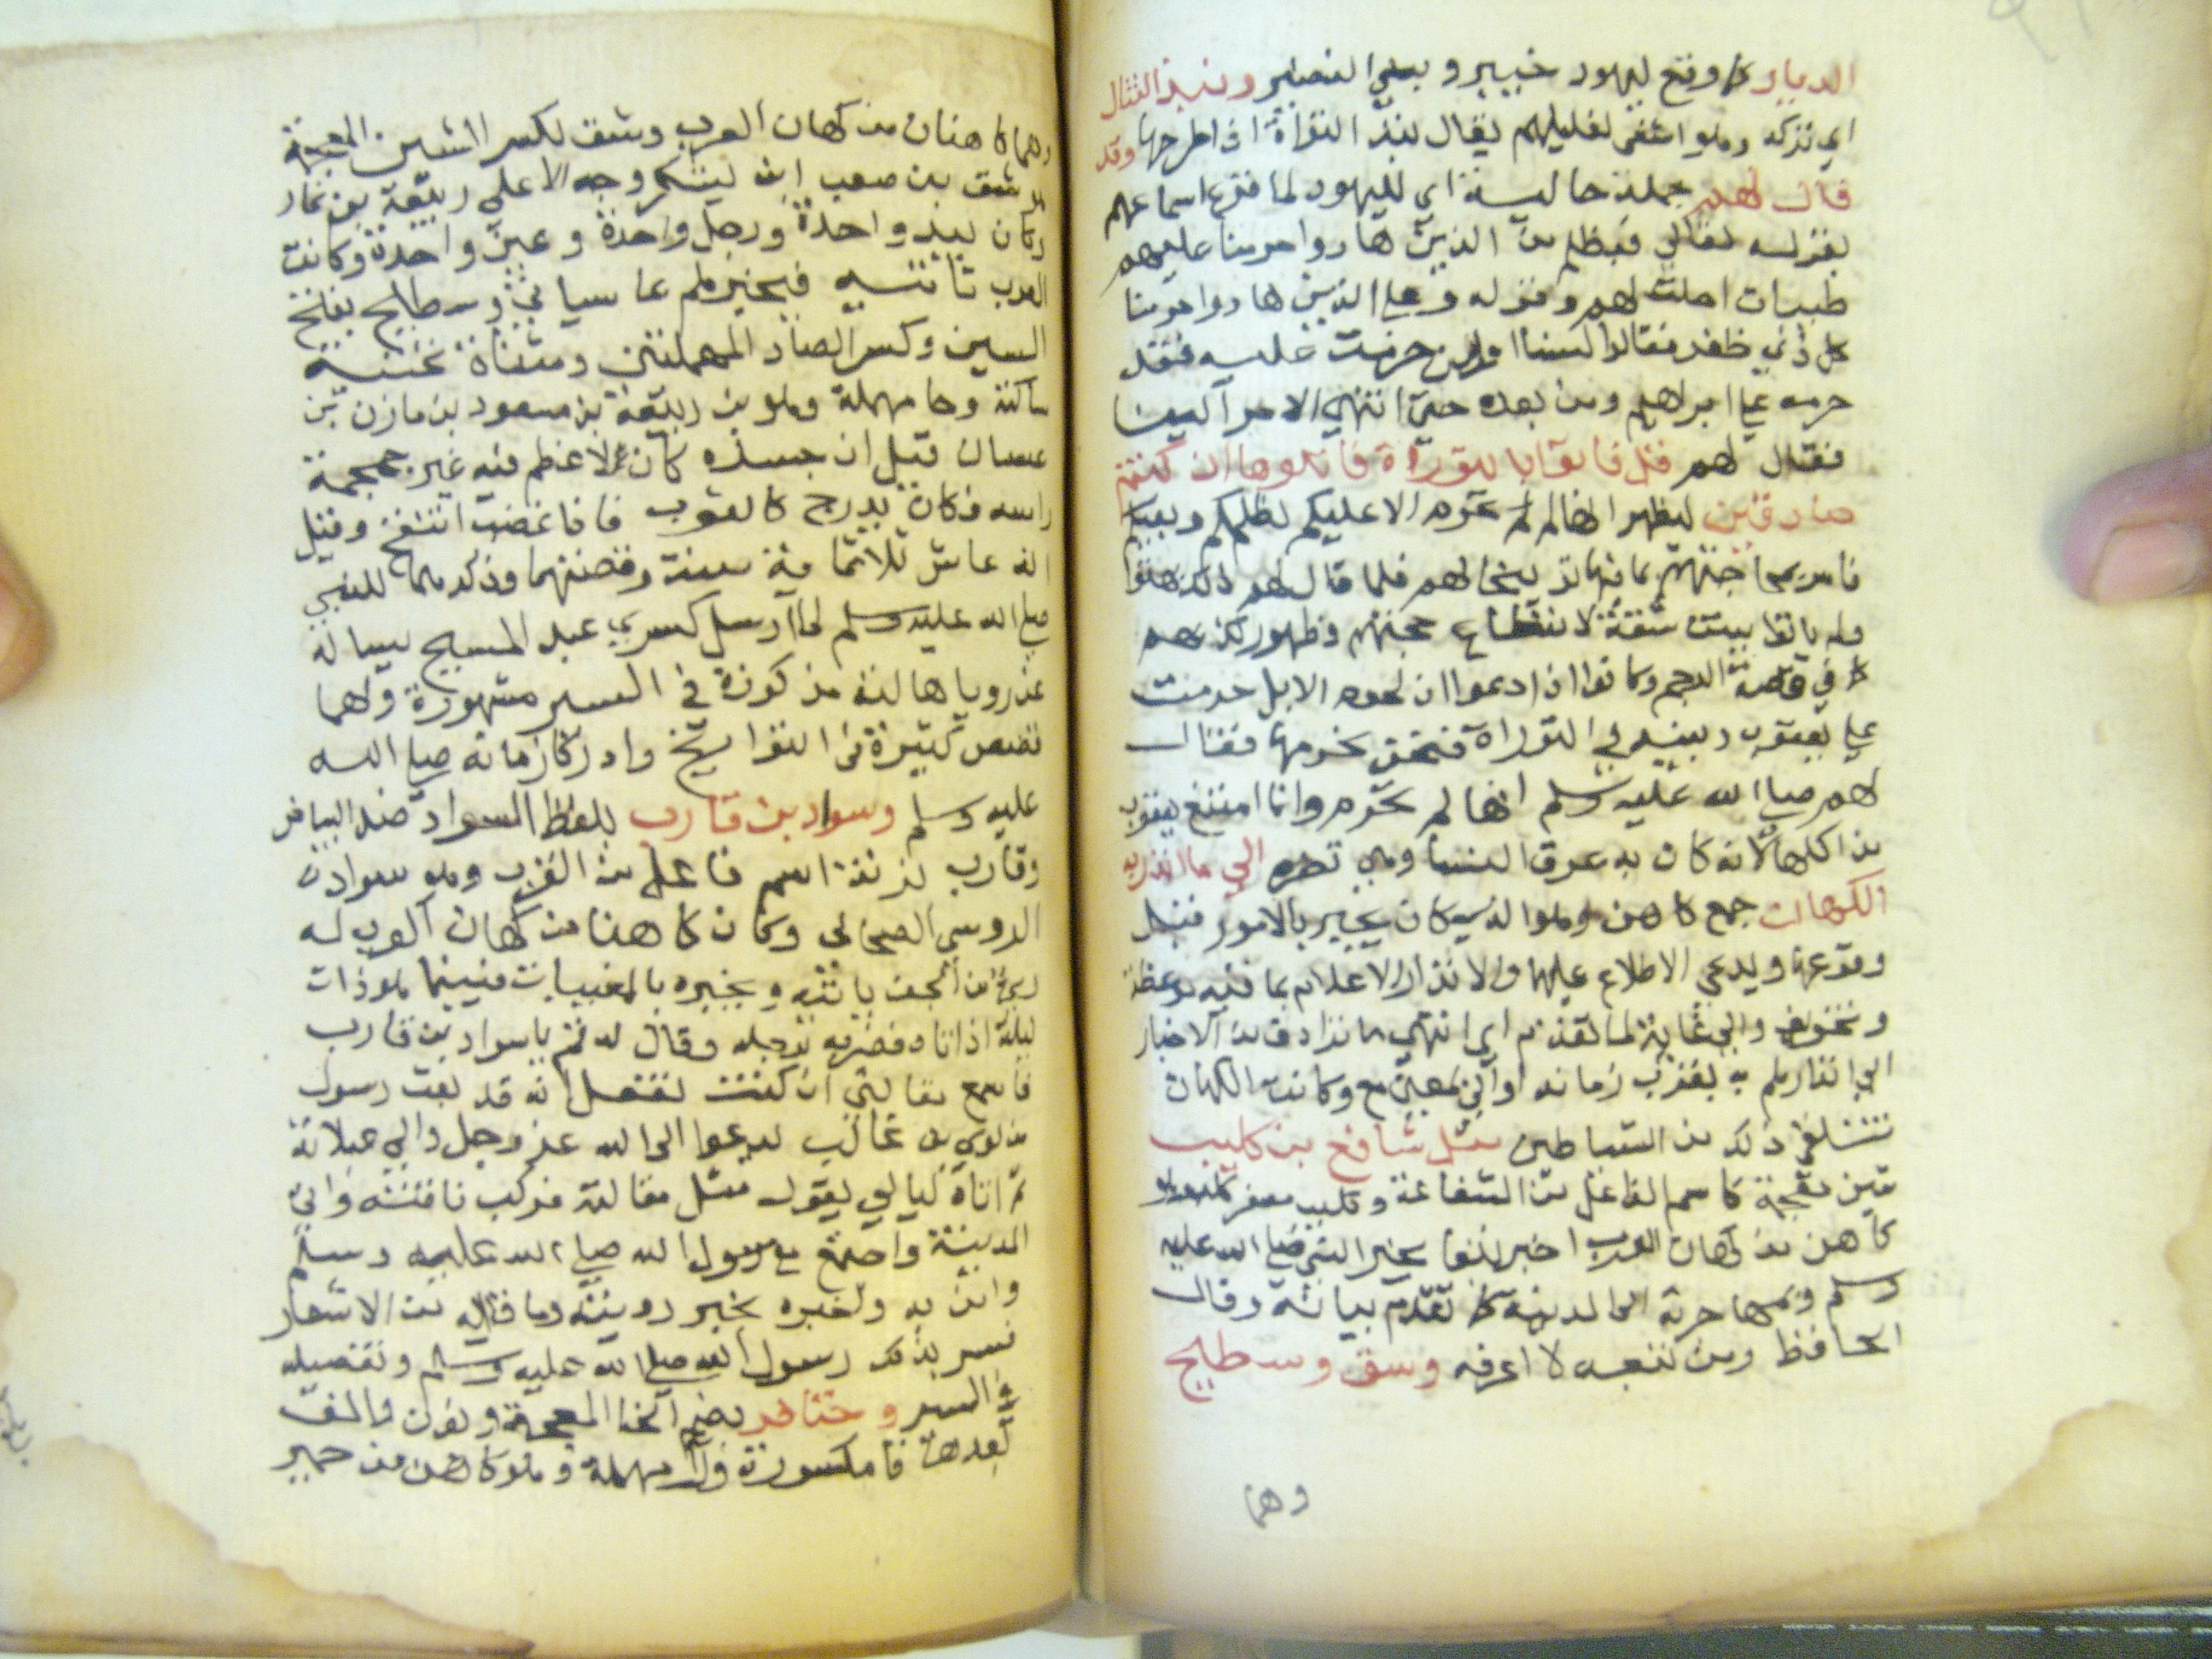 الديار كا وقع ليهود خيبر وبني النضير ونبذ القتال
اي تركه وهو اشق لفعليهم يقال نبذ النواة اذا طرحها وقد
قال لهم جملة حالية اي لليهود لما قرع اسماعهم
بقوله تعالى فبظلم من الذين هادوا حرمنا عليهم
طيبات احلت لهم وقوله وعلى الذين هادوا حرمنا
كل ذي ظفر فقالوا لسنا اول من حرمت عليه فقد
حرمه على ابراهيم ومن بعده حتى انتهى الامر الينا
فقال لهم قل فاتوا بالتوراة فاتلوها ان كنتم
صادقين ليظهر انها لم تحرم الا عليكم لظلمكم وبغيكم
فامر بمحاجتهم بما فيها لهم فلما قال لهم ذلك بهتوا
ولم ياتوا ببنت شفة لانقطاع حجتهم وظهور كذبهم
كا في قصة الرجم وكانوا اذا ادعوا ان لحوم الابل حرمت
على يعقوب وبينه في التوراة فنحن نحرمها فقال
لهم صلى الله عليه وسلم انها لم تحرم وانما امتنع يعقوب
من اكلها لانه كان به عرق النسا وهي تضره الى ما انذر به
الكهان جمع كاهن وهو الذي كان يخبر بالامور قبل
وقوعها ويدعي الاطلاع عليها والانذار الاعلام بما فيه موعظة
وتخويف والى غاية لما تقدم اي انتهى ما ترادف من الاخبار
الى انذارهم به بقرب زمانه او الى بمعنى مع وكانت الكهان
تتلقى ذلك من الشياطين مثل شافع بن كليب
بشين معجمة كاسم الفاعل من الشفاعة وكليب مصغر كلب وهو
كاهن من كهان العرب اخبر تبعا بخبر النبي صلى الله عليه
وسلم وبمهاجرته الى المدينة كا تقدم بيانه وقال
الحافظ ومن تبعه لا اعرفه وشق وسطيح
وهما
وهما كاهنان من كهان العرب وشق بكسر الشين المعجمة
هو شق بن صعب بن يشكر وجه الاعلى ربيعة بن نمار
وكان بيد واحدة ورجل واحدة وعين واحدة وكانت
العرب تاتيه فيخبرهم بما سياتي وسطيح بفتح
السين وكسر الصاد المهملتين ومثناة تحتية
ساكنة وحا مهملة وهو بن ربيعة بن مسعود بن مازن بن
غسان قيل ان جسده كان لا عظم فيه غير جمجمة
راسه وكان يدرج كالثوب فاذا غضب انتفخ وقيل
انه عاش ثلاثمائة سنة وقصتهما وذكرهما للنبي
صلى الله عليه وسلم لما ارسل كسرى عبد المسيح يساله
عن رويا هالته مذكورة في السير مشهورة ولهما
قصص كثيرة في التواريخ وادركا زمانه صلى الله
عليه وسلم وسواد بن قارب بلفظ السواد ضد البياض
وقارب بزنة اسم فاعل من القرب وهو سواد بن
الدوسي الصحابي وكان كاهنا من كهان العرب له
رئي من الجن ياتيه ويخبره بالمغيبات فبينما هو ذات
ليلة اذ اتاه فضربه برجله وقال له قم يا سواد بن قارب
فاسمع مقالتي ان كنت تعقل انه قد بعث رسول
من لوي بن غالب يدعوا الى الله عز وجل والى عبادته
ثم اتاه ليالي يقول مثل مقالته فركب ناقته واتى
المدينة واجتمع مع رسول الله صلى الله عليه وسلم
وامن به واخبره بخبر رويته وما قاله من الاشعار
فسر بذلك رسول الله صلى الله عليه وسلم وتفصيله
في السير وخنافر بضم الخا المعجمة ونون والف
بعدها فا مكسورة ورا مهملة وهو كاهن من حمير